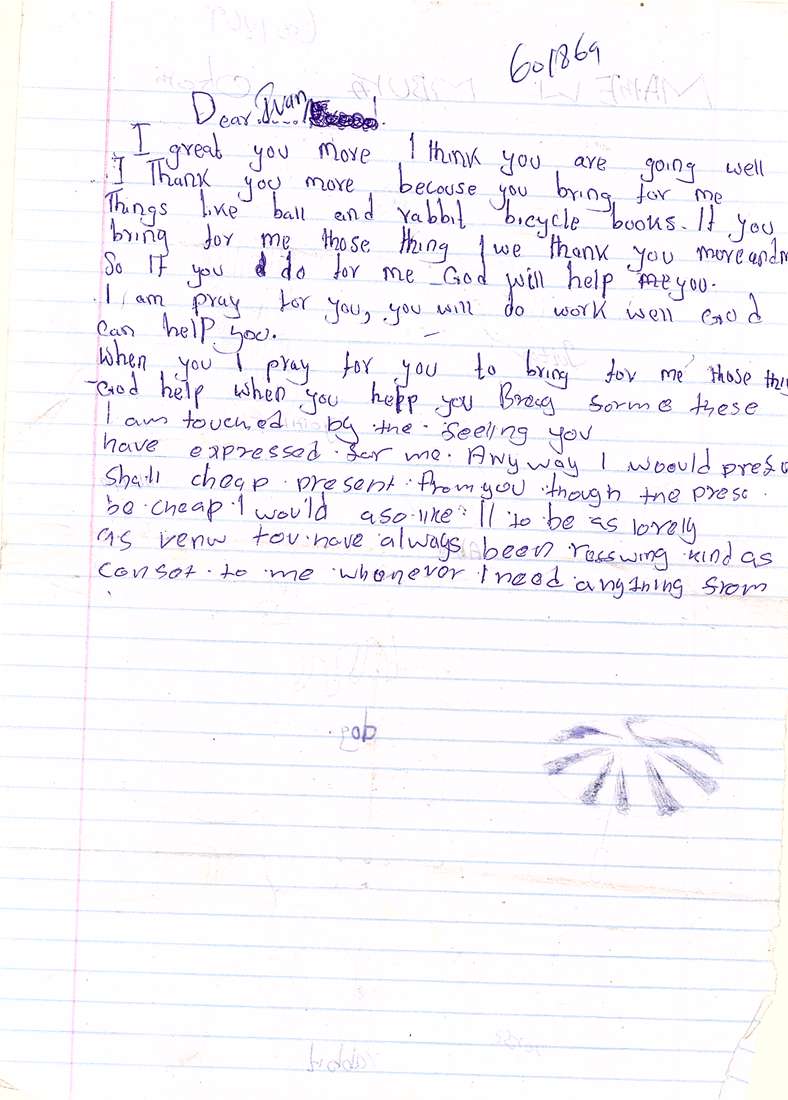 601869
Dear Ivan
I great you more I think you are going well
I Thank you more becouse you bring for me
Things like ball and rabbit bicycle books. If you
bring for me those thing I we thank you more and m
So If you do for me God will help me you.
I am pray for you, you will do work well God
can help you.
When you I pray for you to bring for me those thi
God help when you help you Breg sorme these
I am touched by the seeling you
have expressed for me. Any way I woould preso
shall cheap present from you though the preso
be cheap I would aso like ll to be as lovely
as venw tov have always been rosswing kind as
consot to me whonever I need anything srom
dog
rabbit